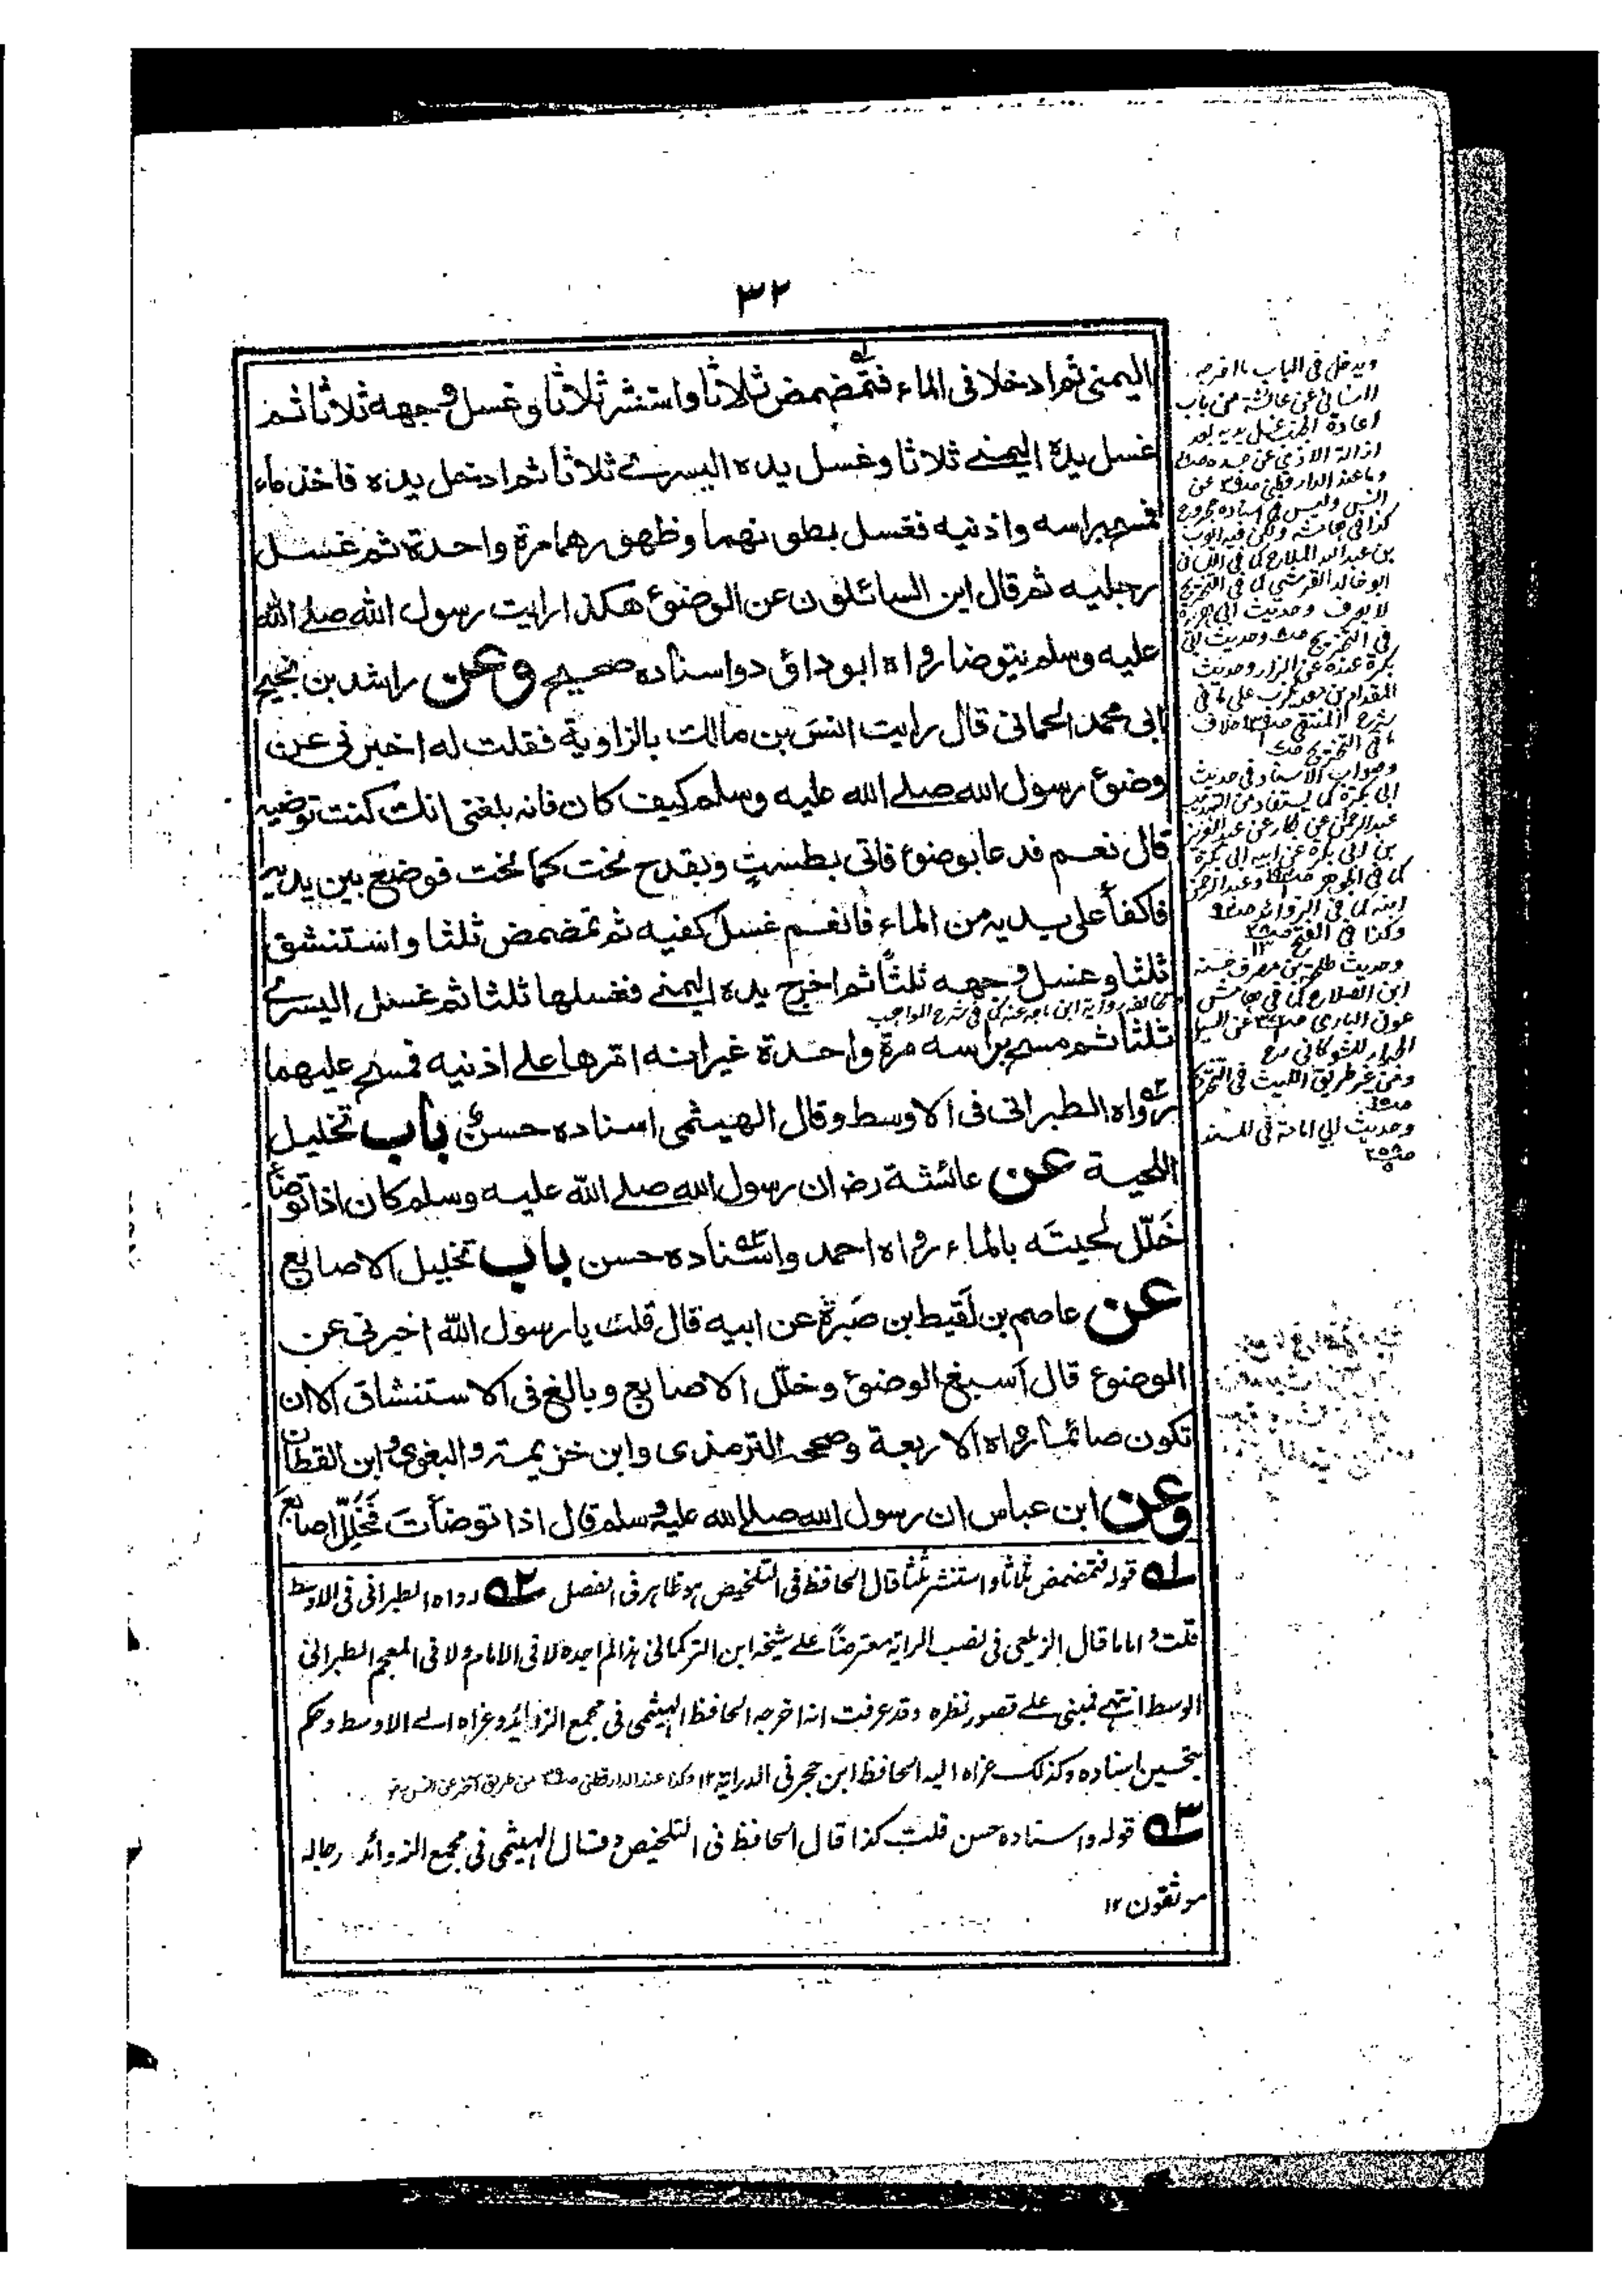 ٣٢
اليمنى ثم ادخلا فى الماء فتمضمض ثلاثا واستنشر ثلاثا وغسل وجهه ثلاثا ثم
غسل يده اليمنے ثلاثا وغسل يده اليسرے ثلاثا ثم ادخل يده فاخذ ماء
فمسح براسه واذنيه فغسل بطونهما وظهورهما مرة واحدة ثم غسل
رجليه ثم قال اين السائلون عن الوضوء هكذا رايت رسول الله صلے الله
عليه وسلم يتوضا رواه ابو داؤد واسناده صحيح وعن راشد بن نجيح
ابى محمد الحمانى قال رايت انس بن مالك بالزاوية فقلت له اخبرنى عن
وضوء رسول الله صلے الله عليه وسلم كيف كان فانه بلغنى انك كنت توضيه
قال نعم فدعا بوضوء فاتى بطست وبقدح نحت كما نحت فوضع بين يديه
فاكفأ على يديه من الماء فانعم غسل كفيه ثم تمضمض ثلثا واستنشق
ثلثا وغسل وجهه ثلثا ثم اخرج يده اليمنے فغسلها ثلثا ثم غسل اليسرے
ثلثا ثم مسح براسه مرة واحدة غير انه امرها علے اذنيه فمسح عليهما
رواه الطبرانى فى الاوسط وقال الهيثمى اسناده حسن باب تخليل
اللحية عن عائشة رض ان رسول الله صلے الله عليه وسلم كان اذا توضأ
خَلّل لحيتَه بالماء رواه احمد واسناده حسن باب تخليل الاصابع
عن عاصم بن لَقيط بن صَبِرة عن ابيه قال قلت يا رسول الله اخبرنى عن
الوضوء قال اَسبغ الوضوء وخلّل الاصابع وبالغ فى الاستنشاق الا ان
تكون صائما رواه الاربعة وصححه الترمذى وابن خزيمة والبغوى وابن القطان
وعن ابن عباس ان رسول الله صلے الله عليه وسلم قال اذا توضأت فخَلّل اصابع
١ه قوله فتمضمض ثلاثا واستنشر ثلثا قال الحافظ فى التلخيص هو ظاهر فى الفصل ٢ه رواه الطبرانى فى الاوسط
قلت واما ما قال الزيلعى فى نصب الراية معترضاً علے شيخه ابن التركمانى هذا لم اجده لا فى الامام ولا فى المعجم الطبرانى
الوسط انتهے فمبنى علے قصور نظره وقد عرفت انه اخرجه الحافظ الهيثمى فى مجمع الزوائد وعزاه الے الاوسط وحكم
بتحسين اسناده وكذلك عزاه اليه الحافظ ابن حجر فى الدراية ١٢ وكذا عند الدارقطنى من طريق آخر عن انس
٣ه قوله واسناده حسن قلت كذا قال الحافظ فى التلخيص وقال الهيثمى فى مجمع الزوائد رجاله
موثقون ١٢
ويدخل فى الباب ما اخرجه
النسائى عن عائشة من باب
ازالة الاذى عن جسده
وما عند الدارقطنى عن
انس وليس فى اسناده مجروح
فى التخريج وحديث ابى
بكرة عنده عن البزار وحديث
المقدام بن معديكرب على ما فى
شرح المنتقى خلاف
ما فى التخريج
وصواب الاسناد فى حديث
ابى بكرة كما يستفاد من
عبد الرحمن عن بكار عن عبد العزيز
بن ابى بكرة عن ابيه ابى بكرة
كما فى الجوهر وعبد الرحمن
ابنه كما فى الزوائد
وكذا فى الفتح
وحديث طلحة بن مصرف حسنه
ابن الصلاح كما فى هامش
عون البارى عن السيل
الجرار للشوكانى
ومن غير طريق الليث فى التخريج
وحديث ابى امامة فى المسند